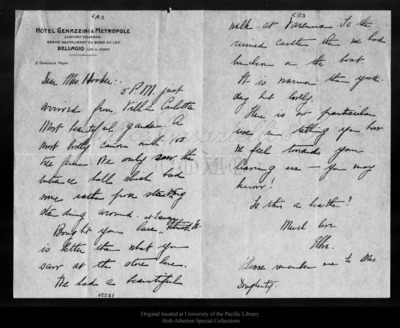 EAS
HOTEL GENAZZINI & METROPOLE
COMFORT MODERNE
GRAND RESTAURANT AU BORD DU LAC
BELLAGIO (LAC DE COME)
Dear Mrs. Hooker:-
5 P.M. just
arrived from Villa Carlotta
Most beautiful garden. A
most lovely
We only saw the
entrance hall which had
some
standing around.
Bought you lace,
is better than what you
saw at the store here.
We had a beautiful
05581
EAS
walk at Varenna to the
ruined castle that we had
luncheon on the boat.
It is warmer than yester-
day but lovely.
There is no particular
use in telling you how
we feel towards your
leaving us - you may
know!
Is this a letter?
Much love
Please remember me to Mrs.
Dougherty.
Original located at University of the Pacific Library
Holt-Atherton Special Collections